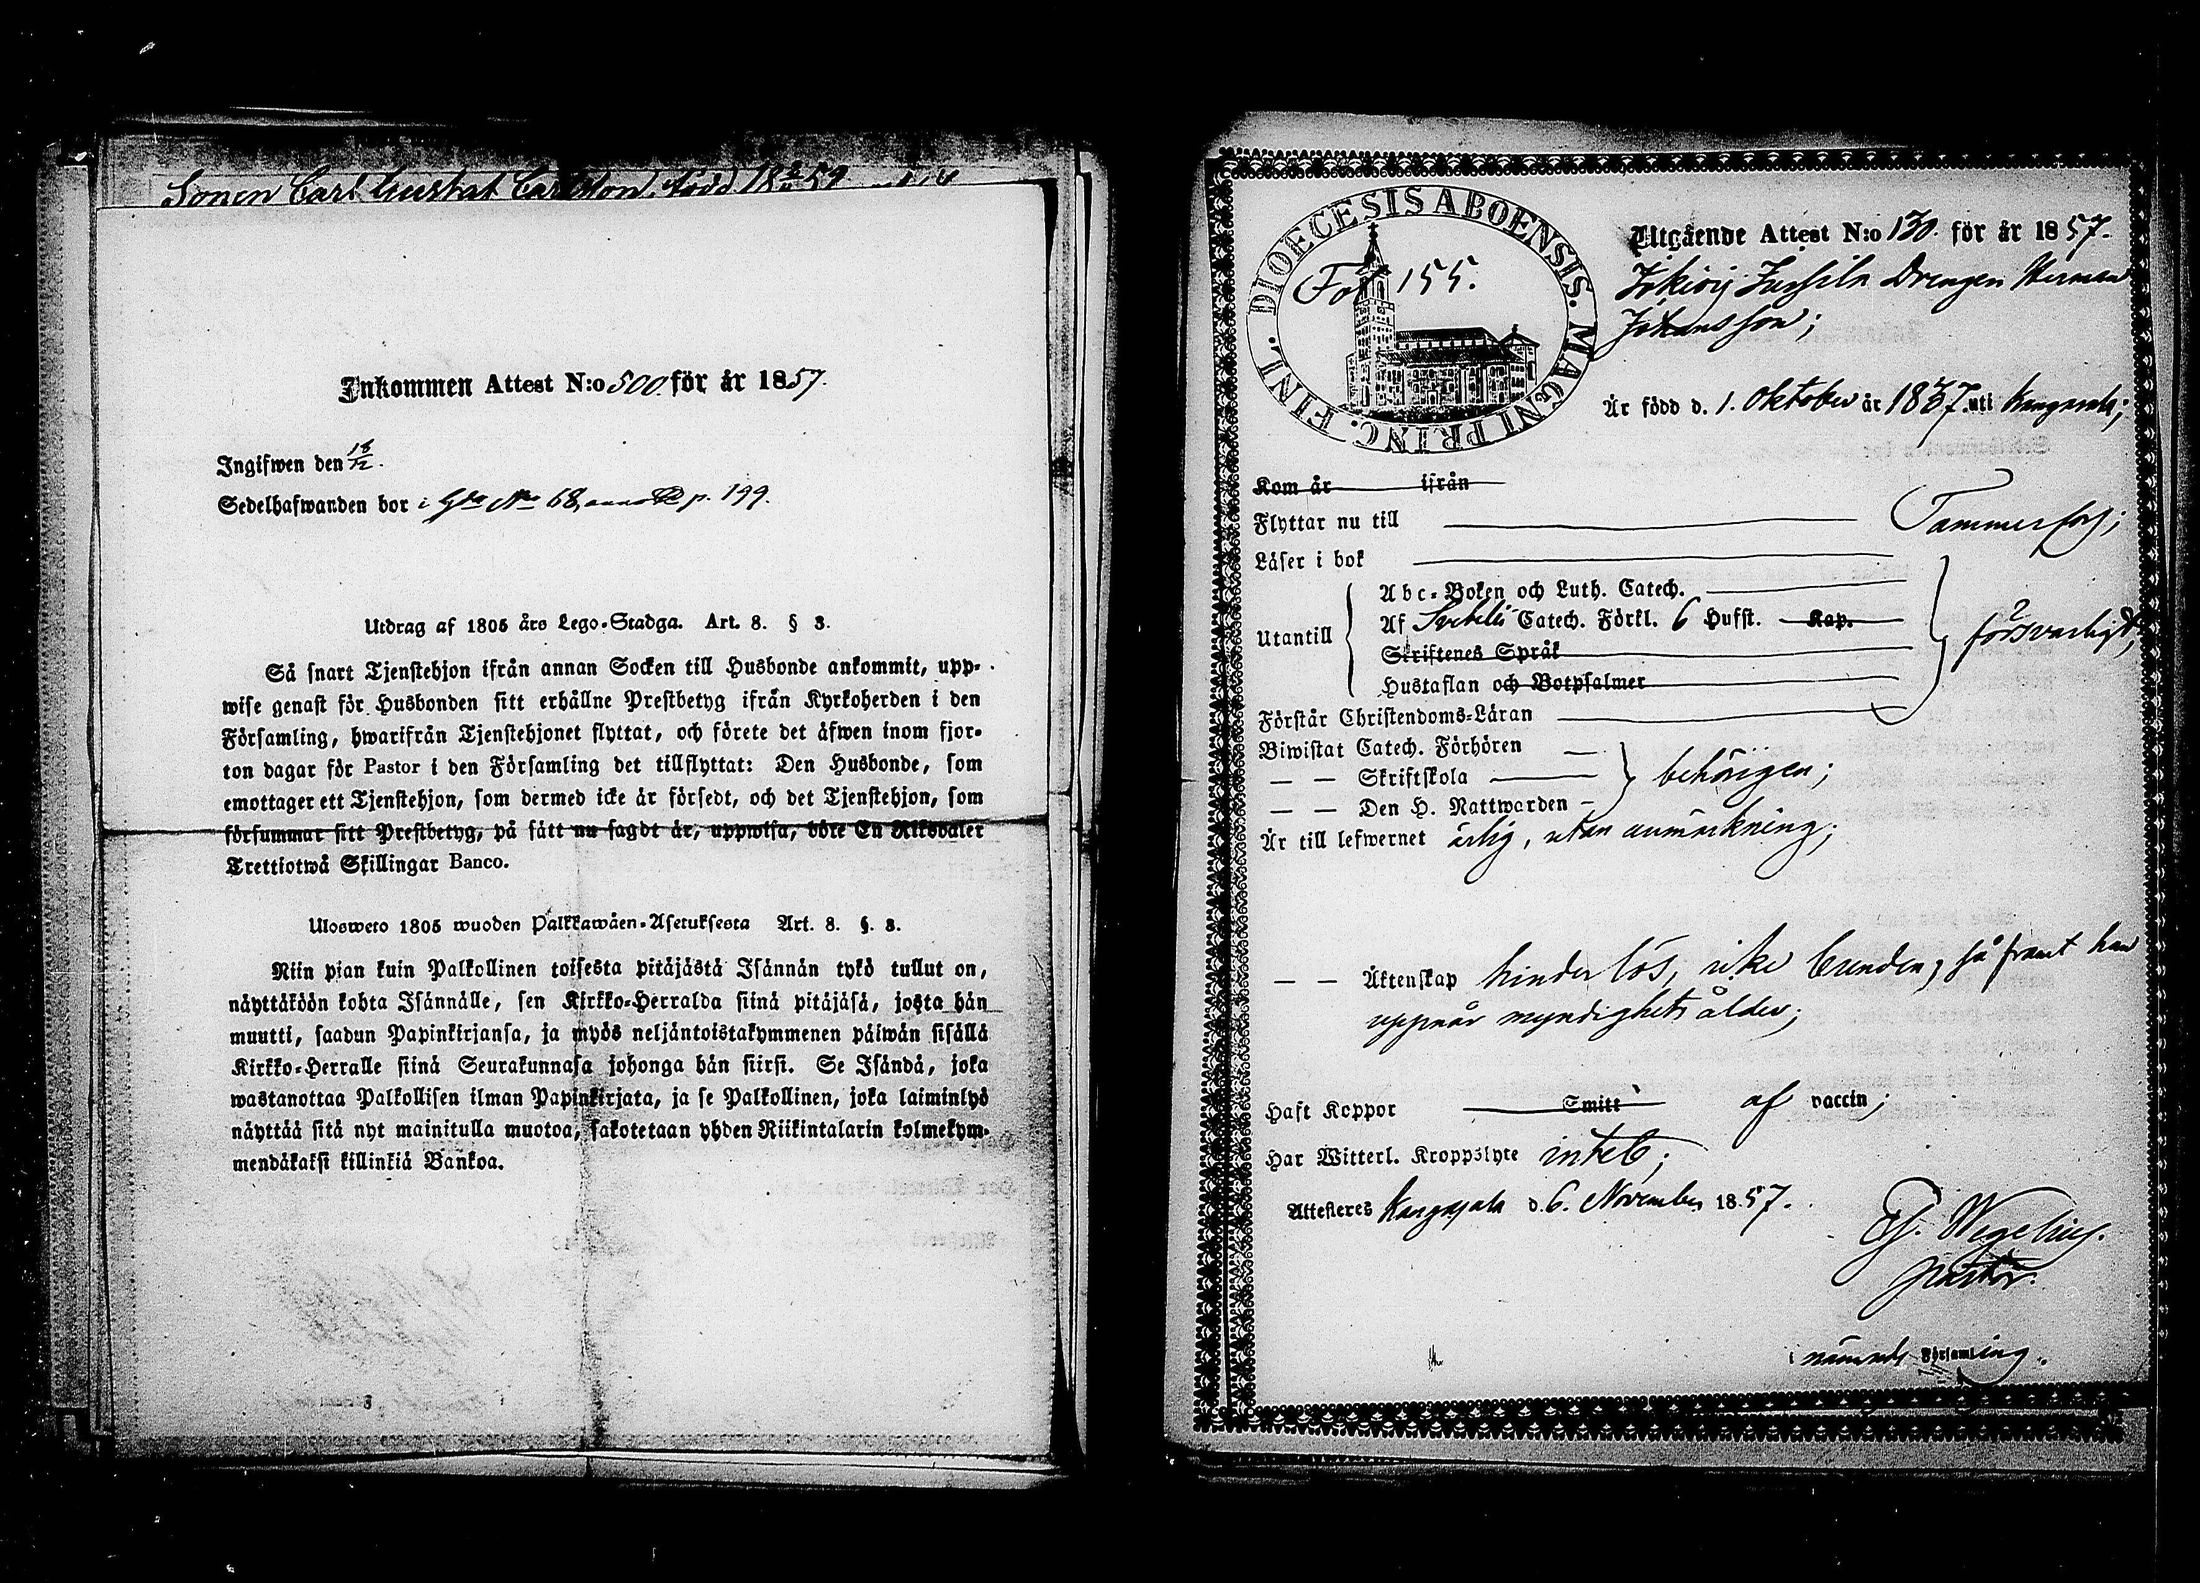 Sonen Carl Gustaf Carlsson född 18 59
Inkommen Attest N:o 500. för år 1857.
Ingifwen den 18/12.
Sedelhafwanden bor i Gda No 68, p. 199.
Utdrag af 1805 års Lego-Stadga. Art. 8. § 3.
Så snart Tjenstehjon ifrån annan Socken till Husbonde ankommit, upp-
wise genast för Husbonden sitt erhållne Prestbetyg ifrån Kyrkoherden i den
Församling, hwarifrån Tjenstehjonet flyttat, och förete det äfwen inom fjor-
ton dagar för Pastor i den Församling det tillflyttat: Den Husbonde, som
emottager ett Tjenstehjon, som dermed icke är försedt, och det Tjenstehjon, som
försummar sitt Prestbetyg, på sätt nu sagdt är, uppwisa, böte En Riksdaler
Trettiotwå Skillingar Banco.
Ulosweto 1805 wuoden Palkkawäen-Asetuksesta Art. 8. §. 3.
Niin pian kuin Palkollinen toisesta pitäjästä Isännän tykö tullut on,
näyttäköön kohta Isännälle, sen Kirkko-Herralda siinä pitäjäsä, josta hän
muutti, saadun Papinkirjansa, ja myös neljäntoistakymmenen päiwän sisällä
Kirkko-Herralle siinä Seurakunnasa johonga hän siirsi. Se Isändä, joka
wastanottaa Palkollisen ilman Papinkirjata, ja se Palkollinen, joka laiminlyö
näyttää sitä nyt mainitulla muotoa, sakotetaan yhden Riikintalarin kolmekym-
mendäkaksi killinkiä Bankoa.
DIOECESIS ABOENSIS. MAGNI PRINC. FINL.
Fol 155.
Utgående Attest N:o 130. för år 1857.
Jokioij Jussila Drengen Herman
Johansson;
Är född d. 1. Oktober år 1837. uti Kangasala;
Kom år ifrån
Flyttar nu till Tammerfors;
Läser i bok
Abc-Boken och Luth. Catech.
Utantill Af Svebelii Catech. Förkl. 6 Hufst. Kap. försvarligt;
Skriftenes Språk
Hustaflan och Botpsalmer
Förstår Christendoms-Läran
Biwistat Catech. Förhören
— — Skriftskola behörigen;
— — Den H. Nattwarden
Är till lefwernet ärlig, utan anmärkning;
— — Äktenskap hinderlös, icke bunden, så framt han
uppnår myndighets ålder;
Haft Koppor Smitt af vaccin;
Har Witterl. Kroppslyte intet;
Attesteres Kangasala d. 6. November 1857.
Wegelius.
Pastor.
i nämnde Församling.